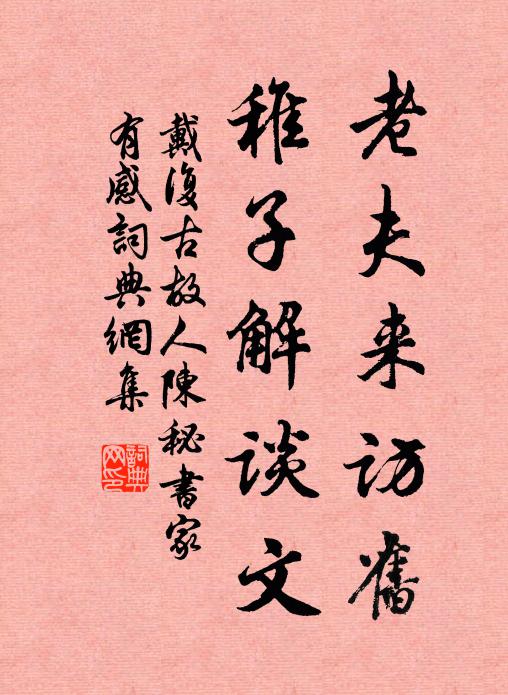 老夫来访舊
稚子解谈文
戴復古故人陳秘書家
有感詞典網集
詞典
网印